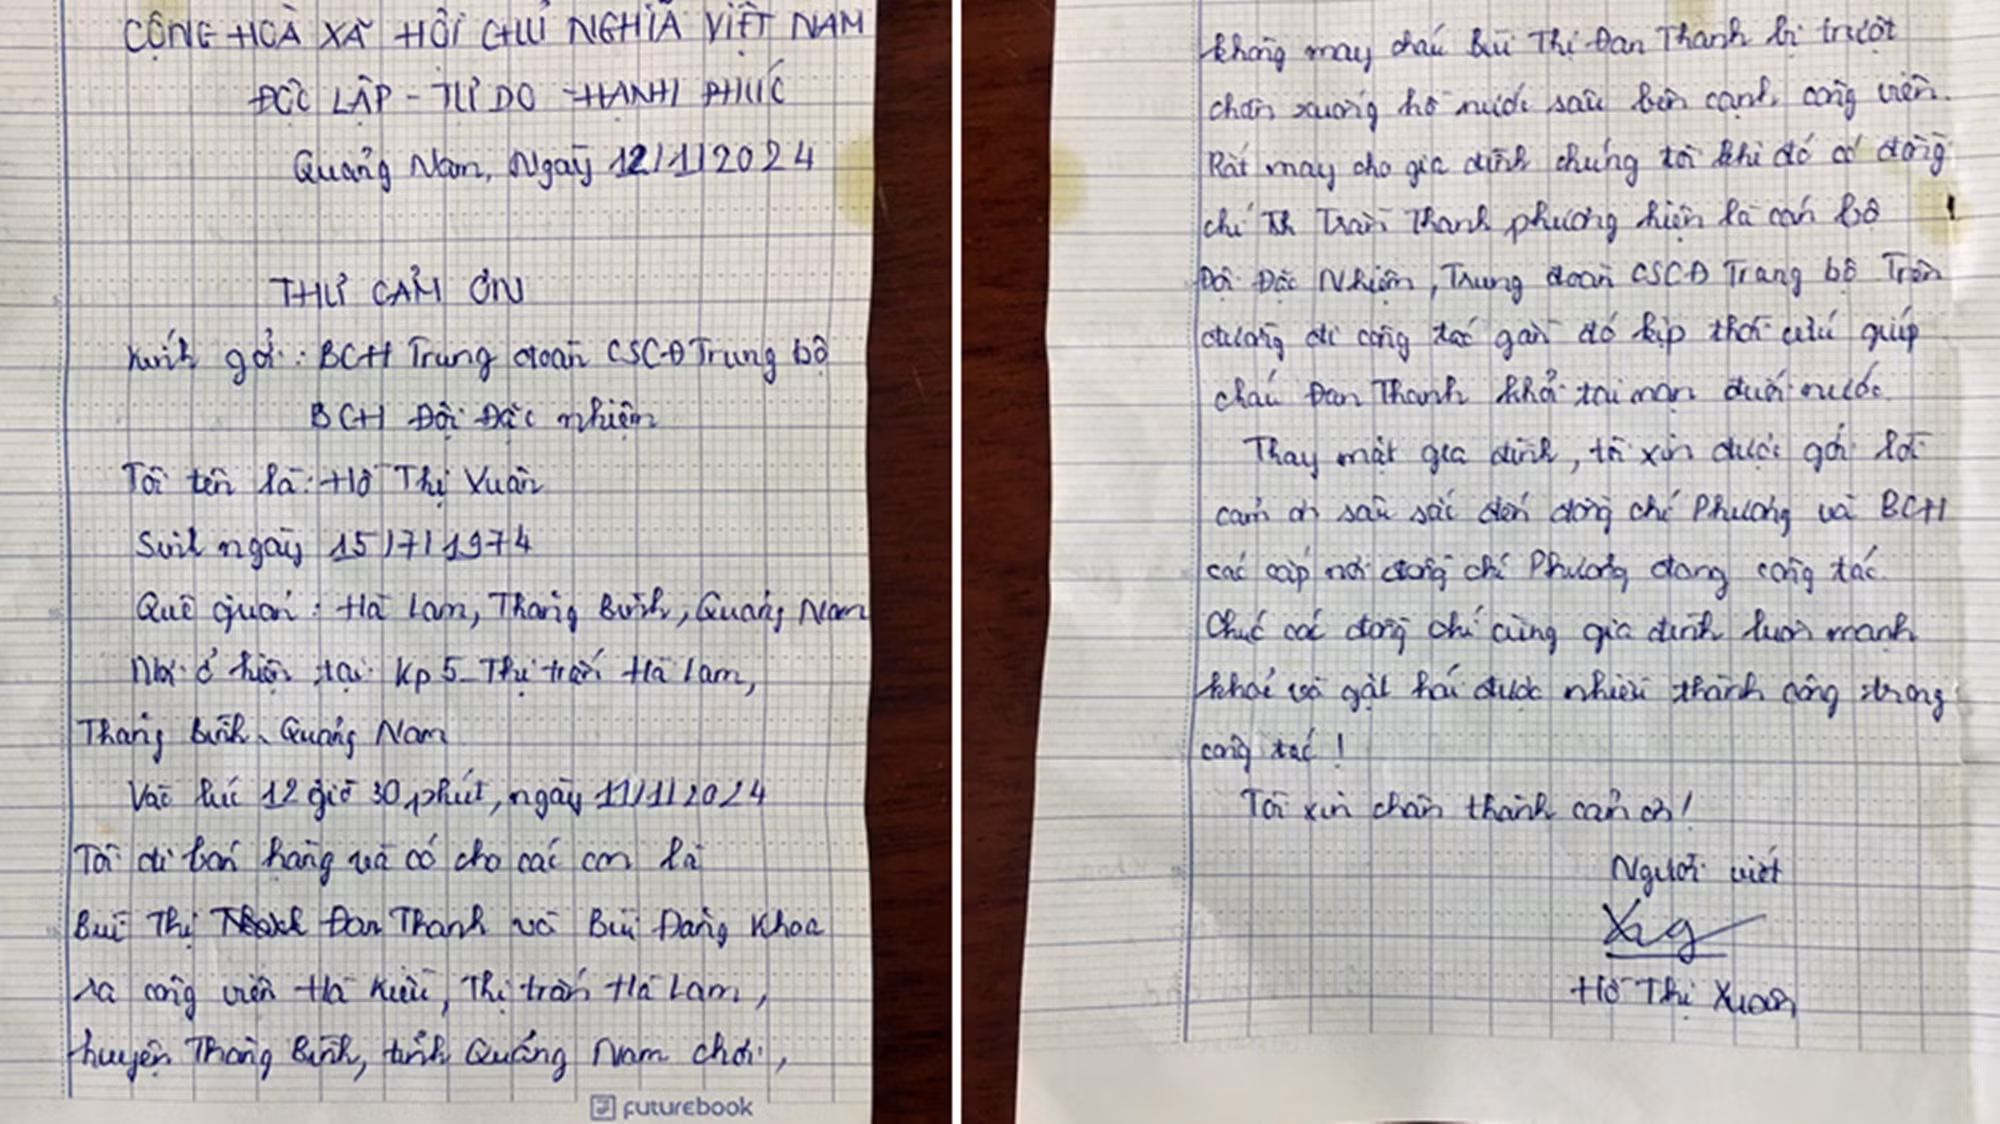 CỘNG HOÀ XÃ HỘI CHỦ NGHĨA VIỆT NAM
ĐỘC LẬP - TỰ DO - HẠNH PHÚC
Quảng Nam, Ngày 12/1/2024
THƯ CẢM ƠN
Kính gởi: BCH Trung đoàn CSCĐ Trung bộ
BCH Đội Đặc nhiệm
Tôi tên là: Hồ Thị Xuân
Sinh ngày 15/7/1974
Quê quán: Hà Lam, Thăng Bình, Quảng Nam
Nơi ở hiện tại: Kp 5 - Thị trấn Hà Lam,
Thăng Bình, Quảng Nam
Vào lúc 12 giờ 30 phút, ngày 11/1/2024
Tôi đi bán hàng và có cho các con là
Bùi Thị Đan Thanh và Bùi Đăng Khoa
ra công viên Hà Kiều, Thị trấn Hà Lam,
huyện Thăng Bình, tỉnh Quảng Nam chơi,
FUTUREBOOK
không may cháu Bùi Thị Đan Thanh bị trượt
chân xuống hồ nước sâu bên cạnh công viên.
Rất may cho gia đình chúng tôi khi đó có đồng
chí Th Trần Thanh Phương hiện là cán bộ
Đội Đặc Nhiệm, Trung đoàn CSCĐ Trang bộ Trên
đường đi công tác gần đó kịp thời cứu giúp
cháu Đan Thanh khỏi tai nạn đuối nước.
Thay mặt gia đình, tôi xin được gởi lời
cảm ơn sâu sắc đến đồng chí Phương và BCH
các cấp nơi đồng chí Phương đang công tác.
Chúc các đồng chí cùng gia đình luôn mạnh
khoẻ và gặt hái được nhiều thành công trong
công tác!
Tôi xin chân thành cảm ơn!
Người viết
Hồ Thị Xuân